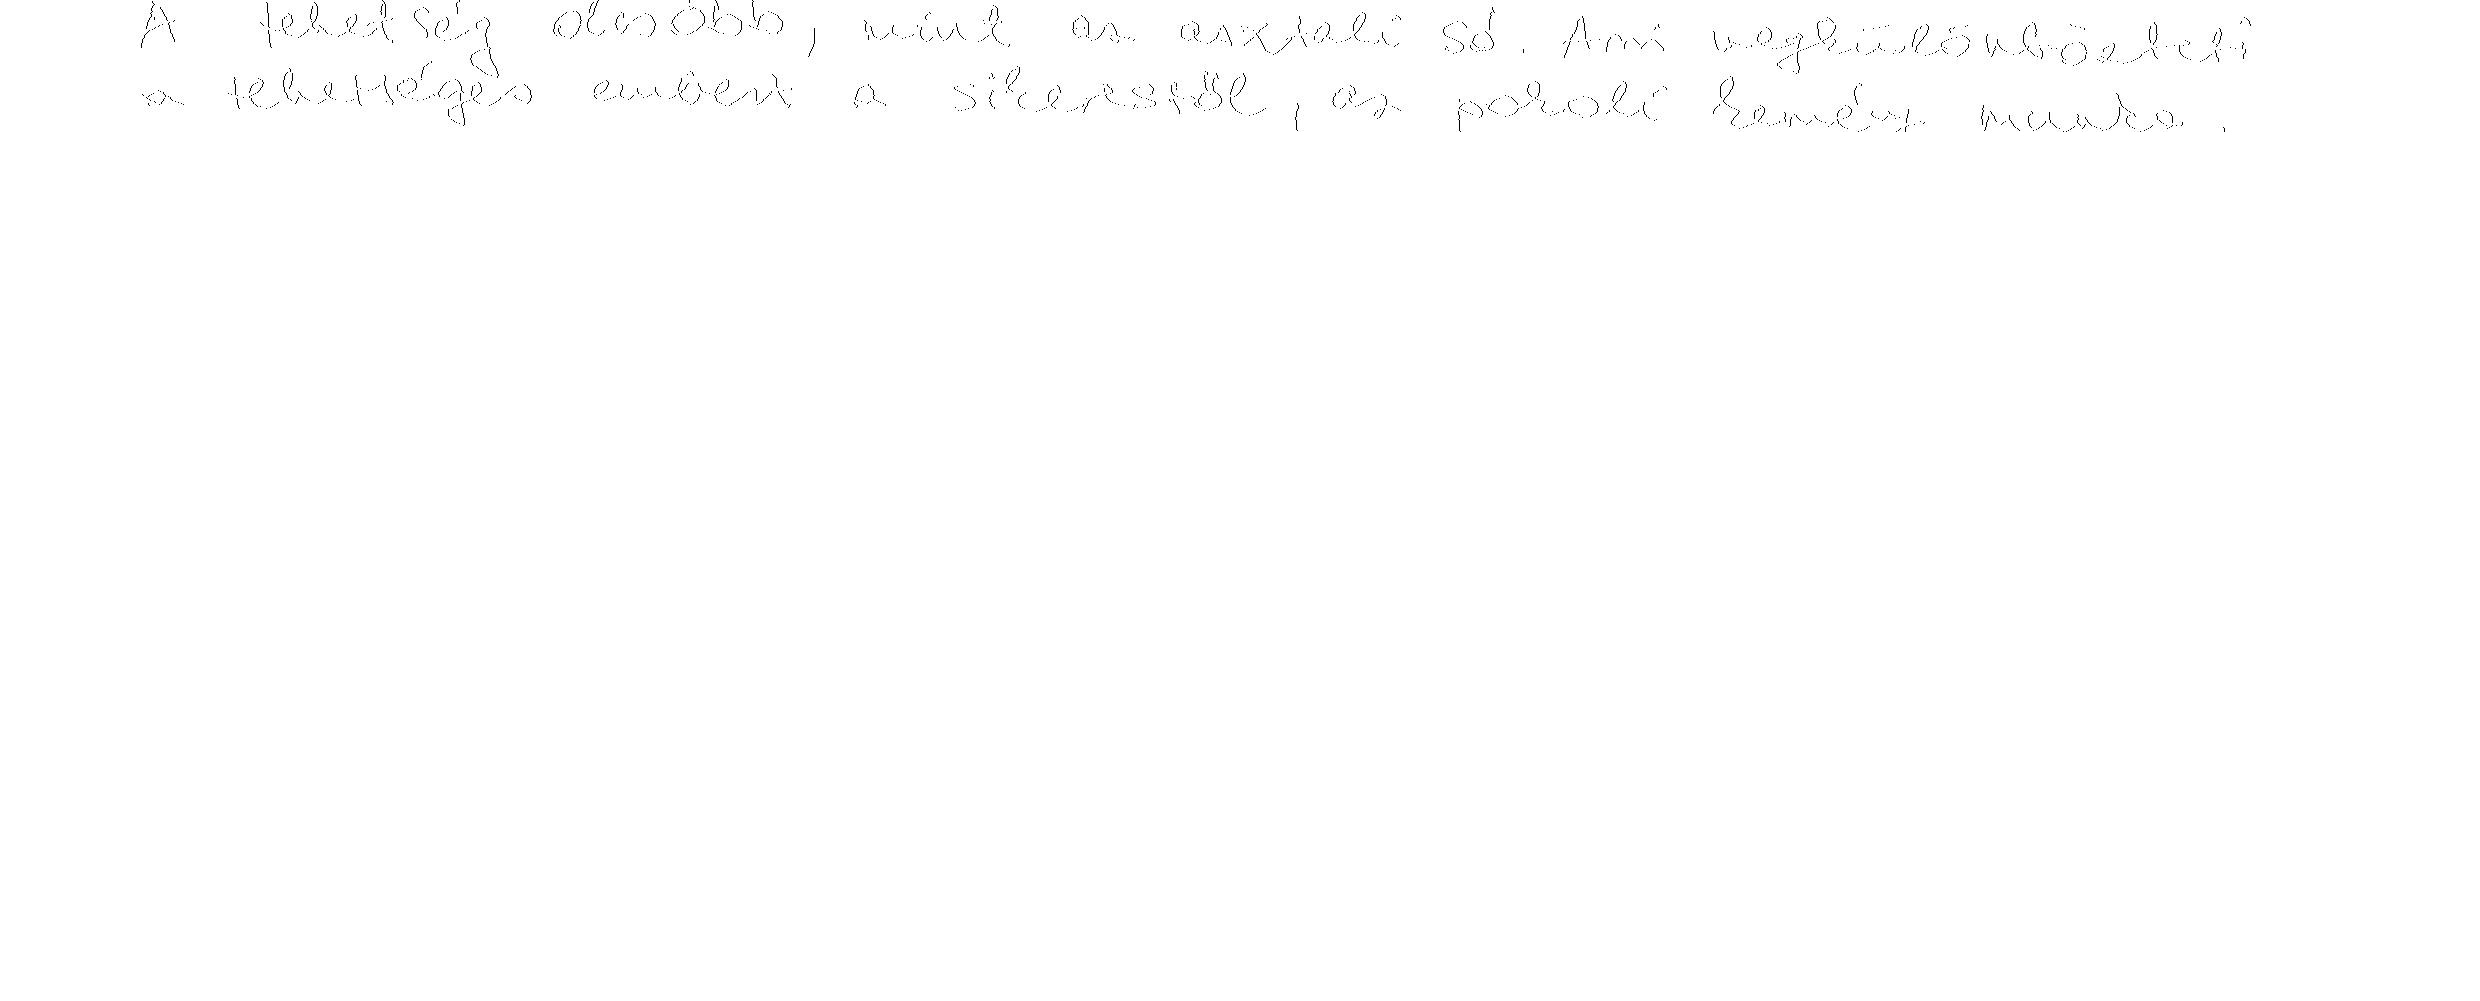 A tehetség olcsóbb, mint az asztali só. Ami megkülönbözteti
a tehetséges embert a sikerestől, az pokoli kemény munka.